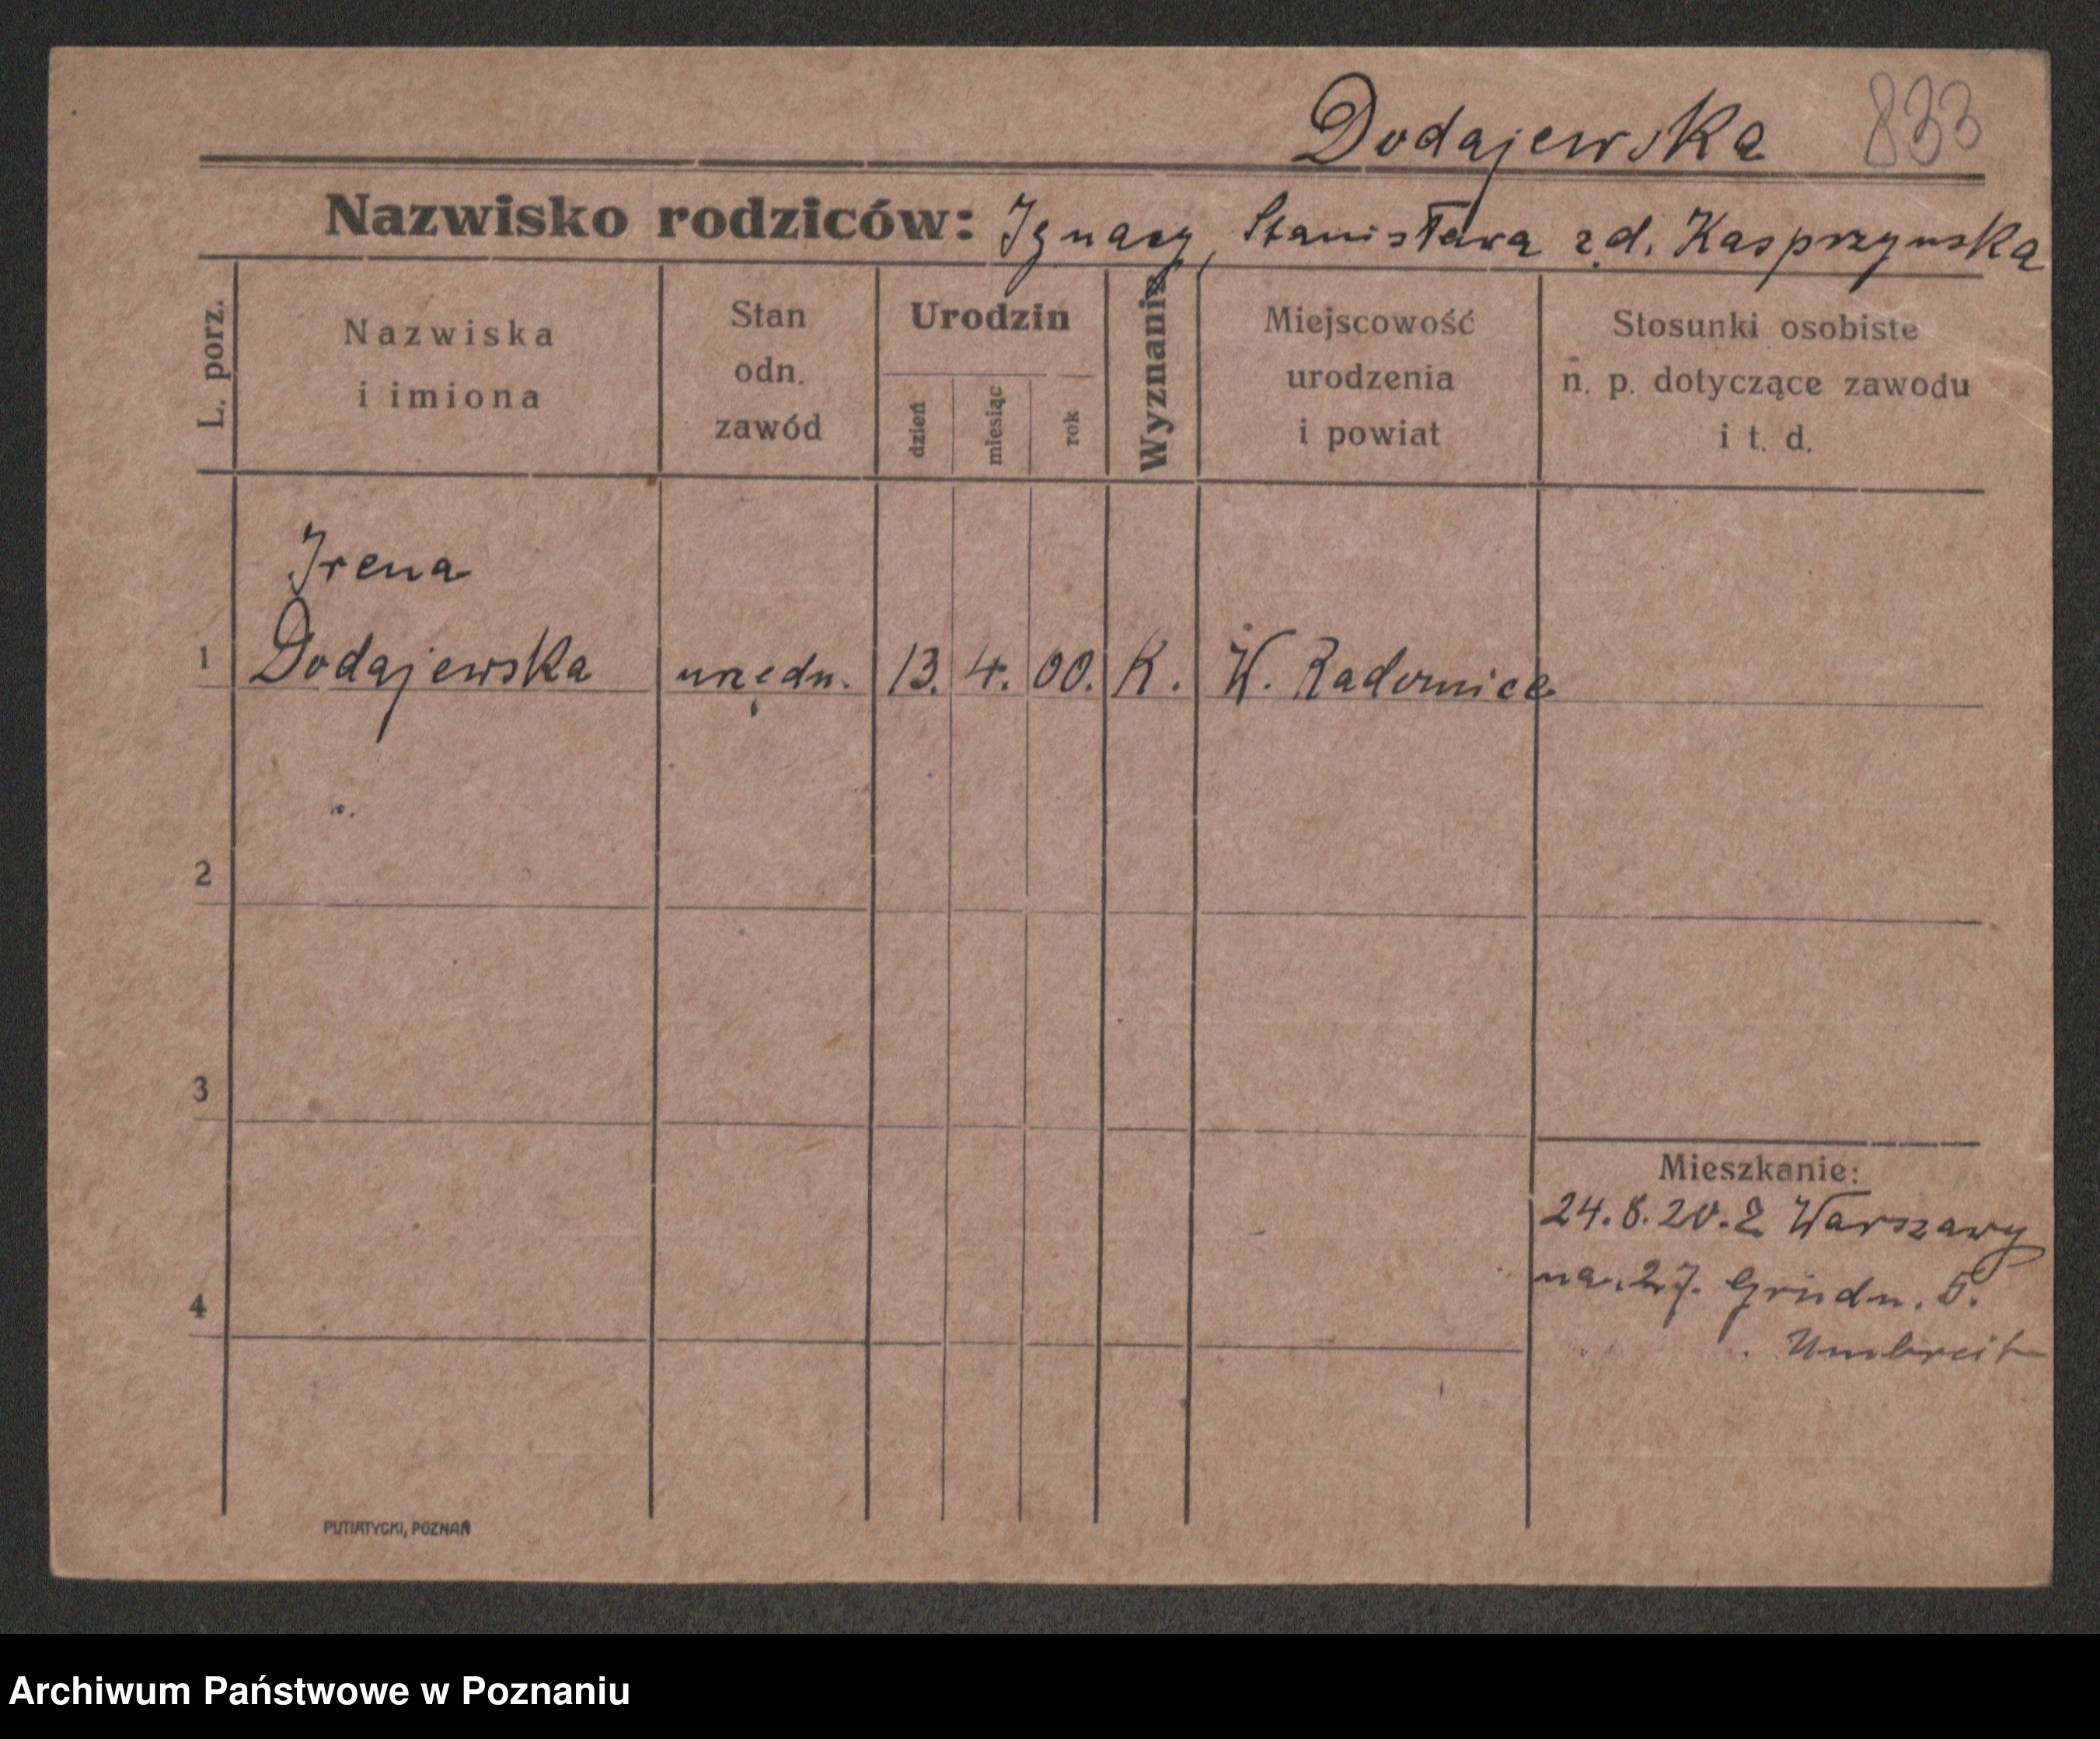 Dodajewska 833
Nazwisko rodziców: Ignacy, Stanisława z d. Kasprzynska
L. porz.
Nazwiska
i imiona
Stan
odn.
zawód
Urodzin
dzień
miesiąc
rok
Wyznanie
Miejscowość
urodzenia
i powiat
Stosunki osobiste
n. p. dotyczące zawodu
i t. d.
Irena
1 Dodajewska urzędn. 13. 4. 00. K. W. Radomice
2
3
4
Mieszkanie:
24.8.20. Z Warszawy
na. 27. Grudn. 5.
Umbreit
PUTIATYCKI, POZNAŃ
Archiwum Państwowe w Poznaniu